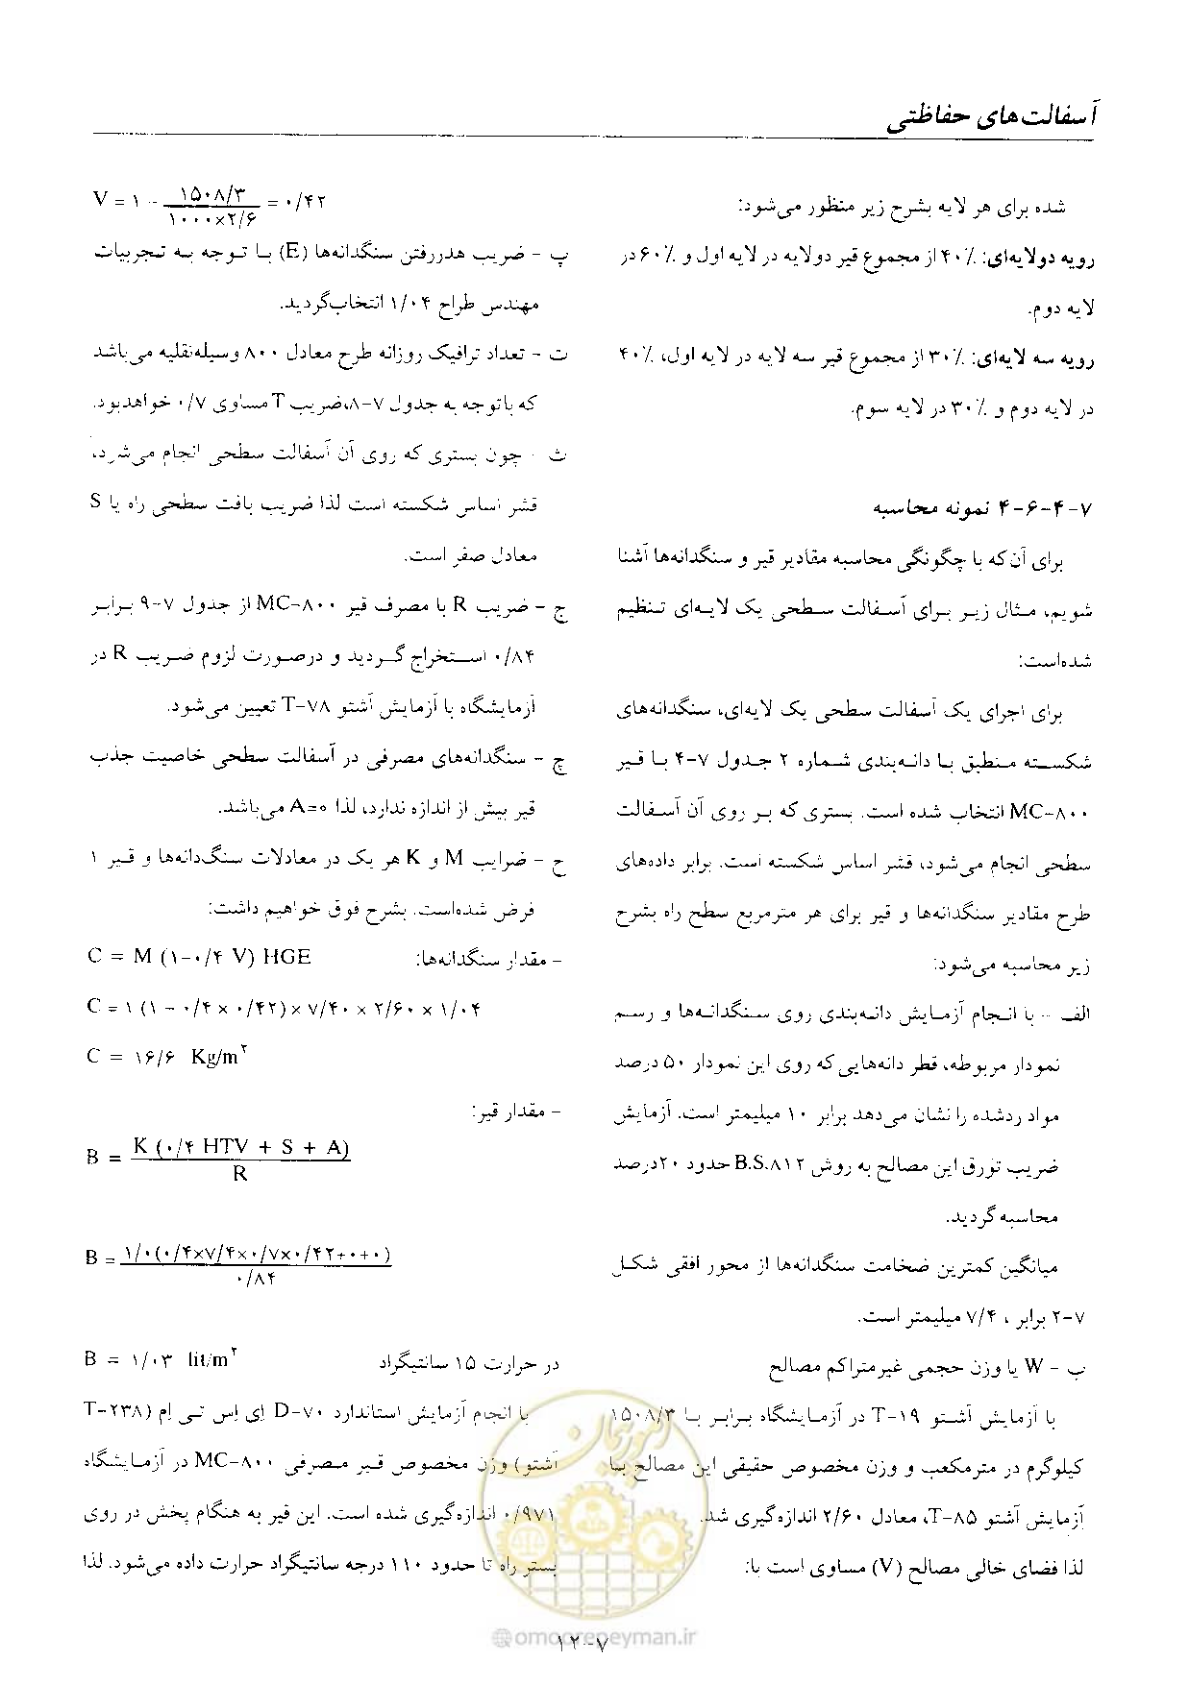 آسفالت‌های حفاظتی
شده برای هر لایه بشرح زیر منظور می‌شود:
رویه دولایه‌ای: ۴۰٪ از مجموع قیر دولایه در لایه اول و ۶۰٪ در
لایه دوم.
رویه سه لایه‌ای: ۳۰٪ از مجموع قیر سه لایه در لایه اول، ۴۰٪
در لایه دوم و ۳۰٪ در لایه سوم.
۷-۴-۶-۴ نمونه محاسبه
برای آن‌که با چگونگی محاسبه مقادیر قیر و سنگدانه‌ها آشنا
شویم، مثال زیر برای آسفالت سطحی یک لایه‌ای تنظیم
شده‌است:
برای اجرای یک آسفالت سطحی یک لایه‌ای، سنگدانه‌های
شکسته منطبق با دانه‌بندی شماره ۲ جدول ۷-۴ با قیر
MC-۸۰۰ انتخاب شده است. بستری که بر روی آن آسفالت
سطحی انجام می‌شود، قشر اساس شکسته است. برابر داده‌های
طرح مقادیر سنگدانه‌ها و قیر برای هر مترمربع سطح راه بشرح
زیر محاسبه می‌شود:
الف - با انجام آزمایش دانه‌بندی روی سنگدانه‌ها و رسم
نمودار مربوطه، قطر دانه‌هایی‌که روی این نمودار ۵۰ درصد
مواد ردشده را نشان می‌دهد برابر ۱۰ میلیمتر است. آزمایش
ضریب تورق این مصالح به روش B.S.۸۱۲ حدود ۲۰درصد
محاسبه گردید.
میانگین کمترین ضخامت سنگدانه‌ها از محور افقی شکل
۷-۲ برابر ، ۷/۴ میلیمتر است.
ب - W یا وزن حجمی غیرمتراکم مصالح
با آزمایش آشتو T-۱۹ در آزمایشگاه برابر با ۱۵۰۸/۳
کیلوگرم در مترمکعب و وزن مخصوص حقیقی این مصالح با
آزمایش آشتو T-۸۵، معادل ۲/۶۰ اندازه‌گیری شد.
لذا فضای خالی مصالح (V) مساوی است با:
V = ۱ - ۱۵۰۸/۳ / ۱۰۰۰×۲/۶ = ۰/۴۲
پ - ضریب هدررفتن سنگدانه‌ها (E) با توجه به تجربیات
مهندس طراح ۱/۰۴ انتخاب‌گردید.
ت - تعداد ترافیک روزانه طرح معادل ۸۰۰ وسیله‌نقلیه می‌باشد
که باتوجه به جدول ۷-۸،ضریب T مساوی ۰/۷ خواهدبود.
ث - چون بستری که روی آن آسفالت سطحی انجام می‌شود،
قشر اساس شکسته است لذا ضریب بافت سطحی راه یا S
معادل صفر است.
ج - ضریب R با مصرف قیر MC-۸۰۰ از جدول ۷-۹ برابر
۰/۸۴ استخراج گردید و درصورت لزوم ضریب R در
آزمایشگاه با آزمایش آشتو T-۷۸ تعیین می‌شود.
چ - سنگدانه‌های مصرفی در آسفالت سطحی خاصیت جذب
قیر بیش از اندازه ندارد، لذا A=۰ می‌باشد.
ح - ضرایب M و K هر یک در معادلات سنگ‌دانه‌ها و قیر ۱
فرض شده‌است. بشرح فوق خواهیم داشت:
- مقدار سنگدانه‌ها: C = M (۱-۰/۴ V) HGE
C = ۱ (۱ - ۰/۴ × ۰/۴۲) × ۷/۴۰ × ۲/۶۰ × ۱/۰۴
C = ۱۶/۶ Kg/m۲
- مقدار قیر:
B = K (۰/۴ HTV + S + A) / R
B = ۱/۰(۰/۴×۷/۴×۰/۷×۰/۴۲+۰+۰) / ۰/۸۴
در حرارت ۱۵ سانتیگراد B = ۱/۰۳ lit/m۲
با انجام آزمایش استاندارد D-۷۰ اِی اِس تی اِم (T-۲۳۸
آشتو) وزن مخصوص قیر مصرفی MC-۸۰۰ در آزمایشگاه
۰/۹۷۱ اندازه‌گیری شده است. این قیر به هنگام پخش در روی
بستر راه تا حدود ۱۱۰ درجه سانتیگراد حرارت داده می‌شود. لذا
امورپیمان
@omoorepeyman.ir
۷-۱۲